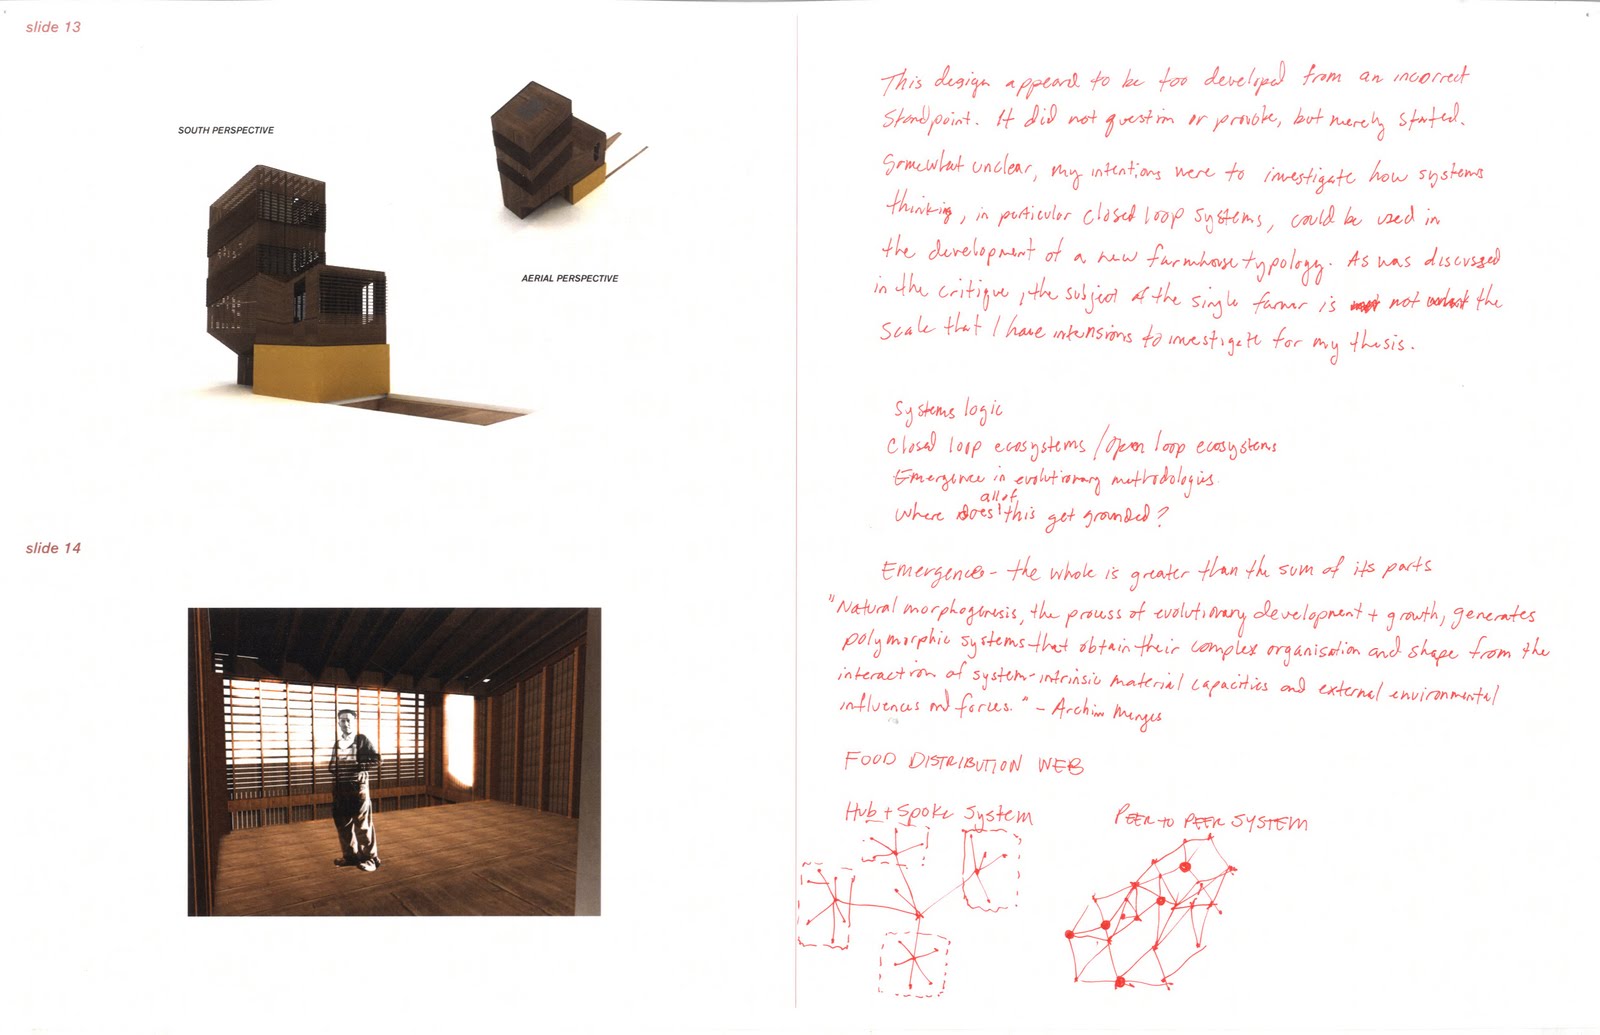 slide 13
SOUTH PERSPECTIVE
AERIAL PERSPECTIVE
slide 14
This design appeared to be too developed from an incorrect
standpoint. It did not question or provoke, but merely stated.
Somewhat unclear, my intentions were to investigate how systems
thinking, in particular closed loop systems, could be used in
the development of a new farmhouse typology. As was discussed
in the critique, the subject of the single farmer is not the
scale that I have intensions to investigate for my thesis.
Systems logic
Closed loop ecosystems / open loop ecosystems
Emergence in evolutionary methodologies.
all of
Where does this get grounded?
Emergence - the whole is greater than the sum of its parts
"Natural morphogenesis, the process of evolutionary development + growth, generates
polymorphic systems that obtain their complex organisation and shape from the
interaction of system-intrinsic material capacities and external environmental
influences and forces." - Achim Menges
FOOD DISTRIBUTION WEB
Hub + Spoke System
PEER to PEER SYSTEM